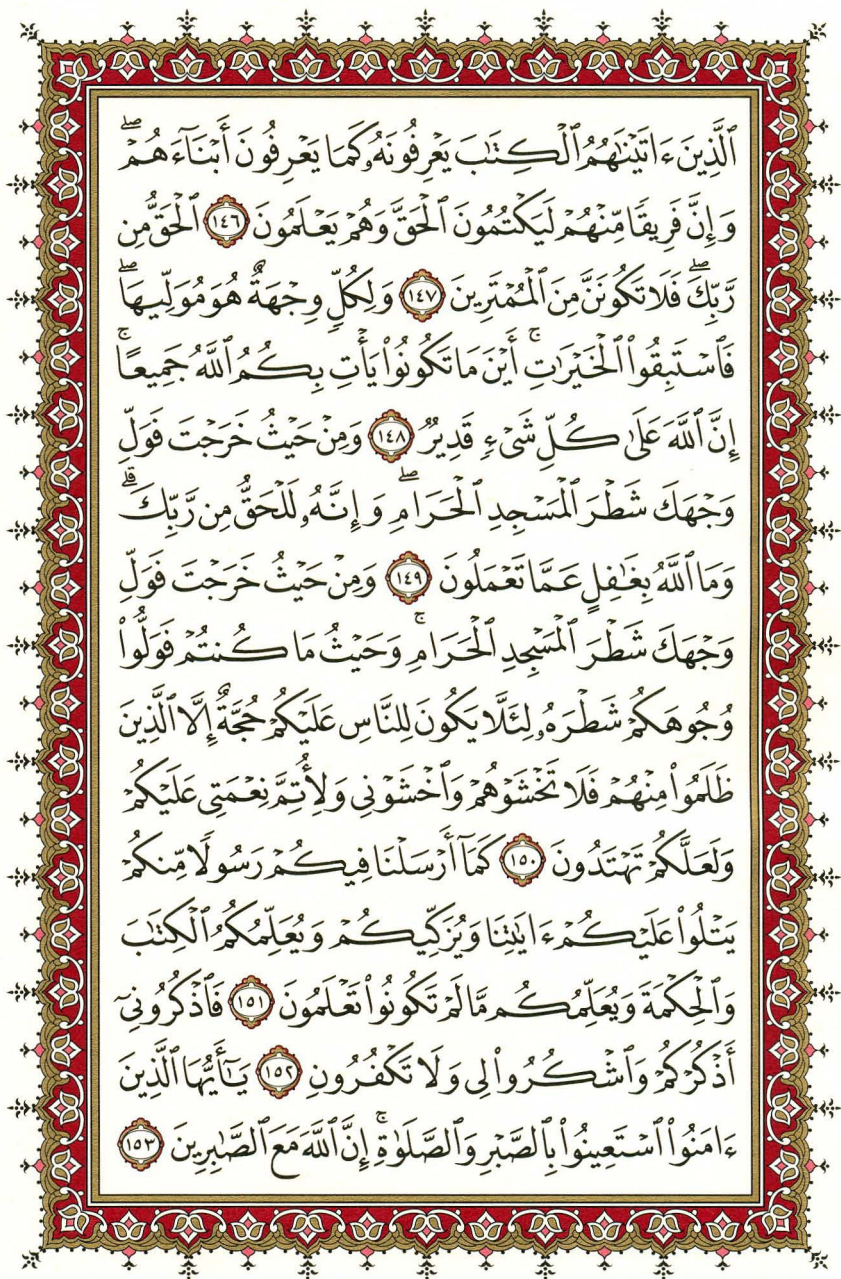 ٱلَّذِينَ ءَاتَيْنَٰهُمُ ٱلْكِتَٰبَ يَعْرِفُونَهُۥ كَمَا يَعْرِفُونَ أَبْنَآءَهُمْ ۖ
وَإِنَّ فَرِيقًا مِّنْهُمْ لَيَكْتُمُونَ ٱلْحَقَّ وَهُمْ يَعْلَمُونَ ١٤٦ ٱلْحَقُّ مِن
رَّبِّكَ ۖ فَلَا تَكُونَنَّ مِنَ ٱلْمُمْتَرِينَ ١٤٧ وَلِكُلٍّ وِجْهَةٌ هُوَ مُوَلِّيهَا ۖ
فَٱسْتَبِقُوا۟ ٱلْخَيْرَٰتِ ۚ أَيْنَ مَا تَكُونُوا۟ يَأْتِ بِكُمُ ٱللَّهُ جَمِيعًا ۚ
إِنَّ ٱللَّهَ عَلَىٰ كُلِّ شَىْءٍ قَدِيرٌ ١٤٨ وَمِنْ حَيْثُ خَرَجْتَ فَوَلِّ
وَجْهَكَ شَطْرَ ٱلْمَسْجِدِ ٱلْحَرَامِ ۖ وَإِنَّهُۥ لَلْحَقُّ مِن رَّبِّكَ ۗ
وَمَا ٱللَّهُ بِغَٰفِلٍ عَمَّا تَعْمَلُونَ ١٤٩ وَمِنْ حَيْثُ خَرَجْتَ فَوَلِّ
وَجْهَكَ شَطْرَ ٱلْمَسْجِدِ ٱلْحَرَامِ ۚ وَحَيْثُ مَا كُنتُمْ فَوَلُّوا۟
وُجُوهَكُمْ شَطْرَهُۥ لِئَلَّا يَكُونَ لِلنَّاسِ عَلَيْكُمْ حُجَّةٌ إِلَّا ٱلَّذِينَ
ظَلَمُوا۟ مِنْهُمْ فَلَا تَخْشَوْهُمْ وَٱخْشَوْنِى وَلِأُتِمَّ نِعْمَتِى عَلَيْكُمْ
وَلَعَلَّكُمْ تَهْتَدُونَ ١٥٠ كَمَآ أَرْسَلْنَا فِيكُمْ رَسُولًا مِّنكُمْ
يَتْلُوا۟ عَلَيْكُمْ ءَايَٰتِنَا وَيُزَكِّيكُمْ وَيُعَلِّمُكُمُ ٱلْكِتَٰبَ
وَٱلْحِكْمَةَ وَيُعَلِّمُكُم مَّا لَمْ تَكُونُوا۟ تَعْلَمُونَ ١٥١ فَٱذْكُرُونِىٓ
أَذْكُرْكُمْ وَٱشْكُرُوا۟ لِى وَلَا تَكْفُرُونِ ١٥٢ يَٰٓأَيُّهَا ٱلَّذِينَ
ءَامَنُوا۟ ٱسْتَعِينُوا۟ بِٱلصَّبْرِ وَٱلصَّلَوٰةِ ۚ إِنَّ ٱللَّهَ مَعَ ٱلصَّٰبِرِينَ ١٥٣